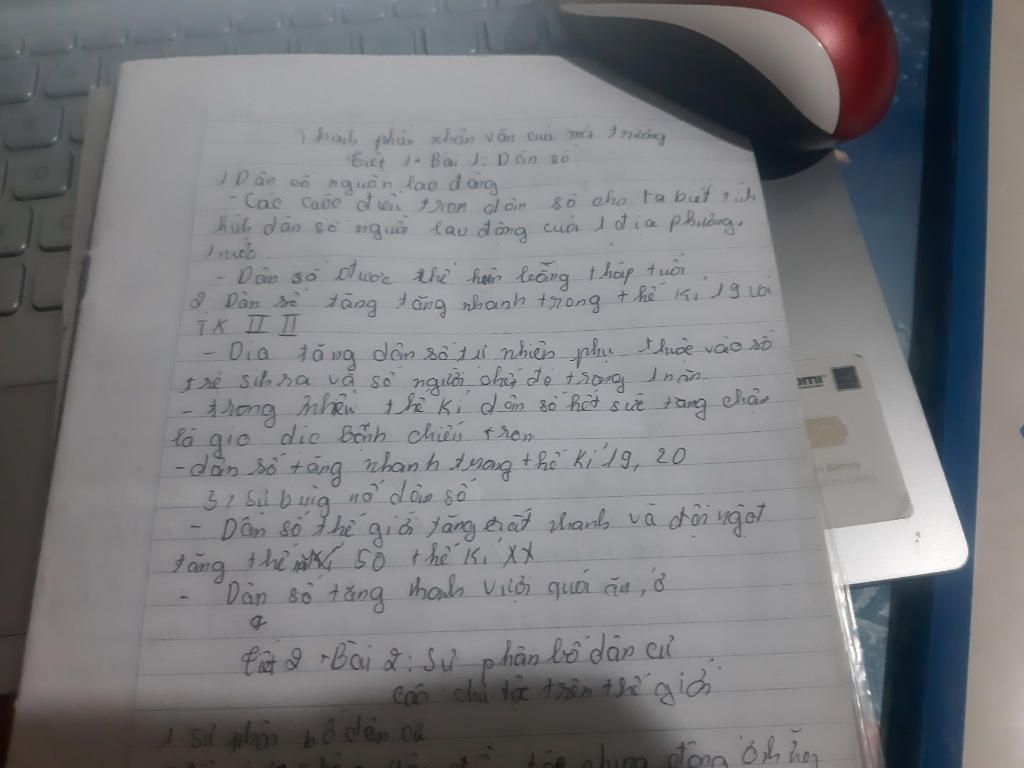 Thành phần nhân văn của mô trường
tiết 1 + Bài 1: Dân số
1 Dân số nguồn lao động
- Các cuôc điều tron dân số cho ta biết tình
hình dân số người lao động của 1 địa phương,
1 nước.
- Dân số được thể hiện bằng tháp tuổi
2 Dân số tăng tăng nhanh trong thế kỉ 19 và
TK II II
- Dia tăng dân số tự nhiên phụ thuôc vào số
trẻ sinh ra và số người chết đi trong 1 năn
- trong nhiều thế kỉ dân số hết sức tang chận
là gio dic bềnh chiến tron
- dân số tăng nhanh trong thế kỉ 19, 20
3, Sử bùig nổ dân số
- Dân số thế giới tăng rất nhanh và đôi ngọt
tăng thế 50 thế kỉ XX
- Dân số tăng nhanh vươi quá ăn, ở
tiết 2 + Bài 2: Sự phân bố dân cư
các chủ tộc trên thế giới
1 Sự phân bố dân cư
omi
Battery